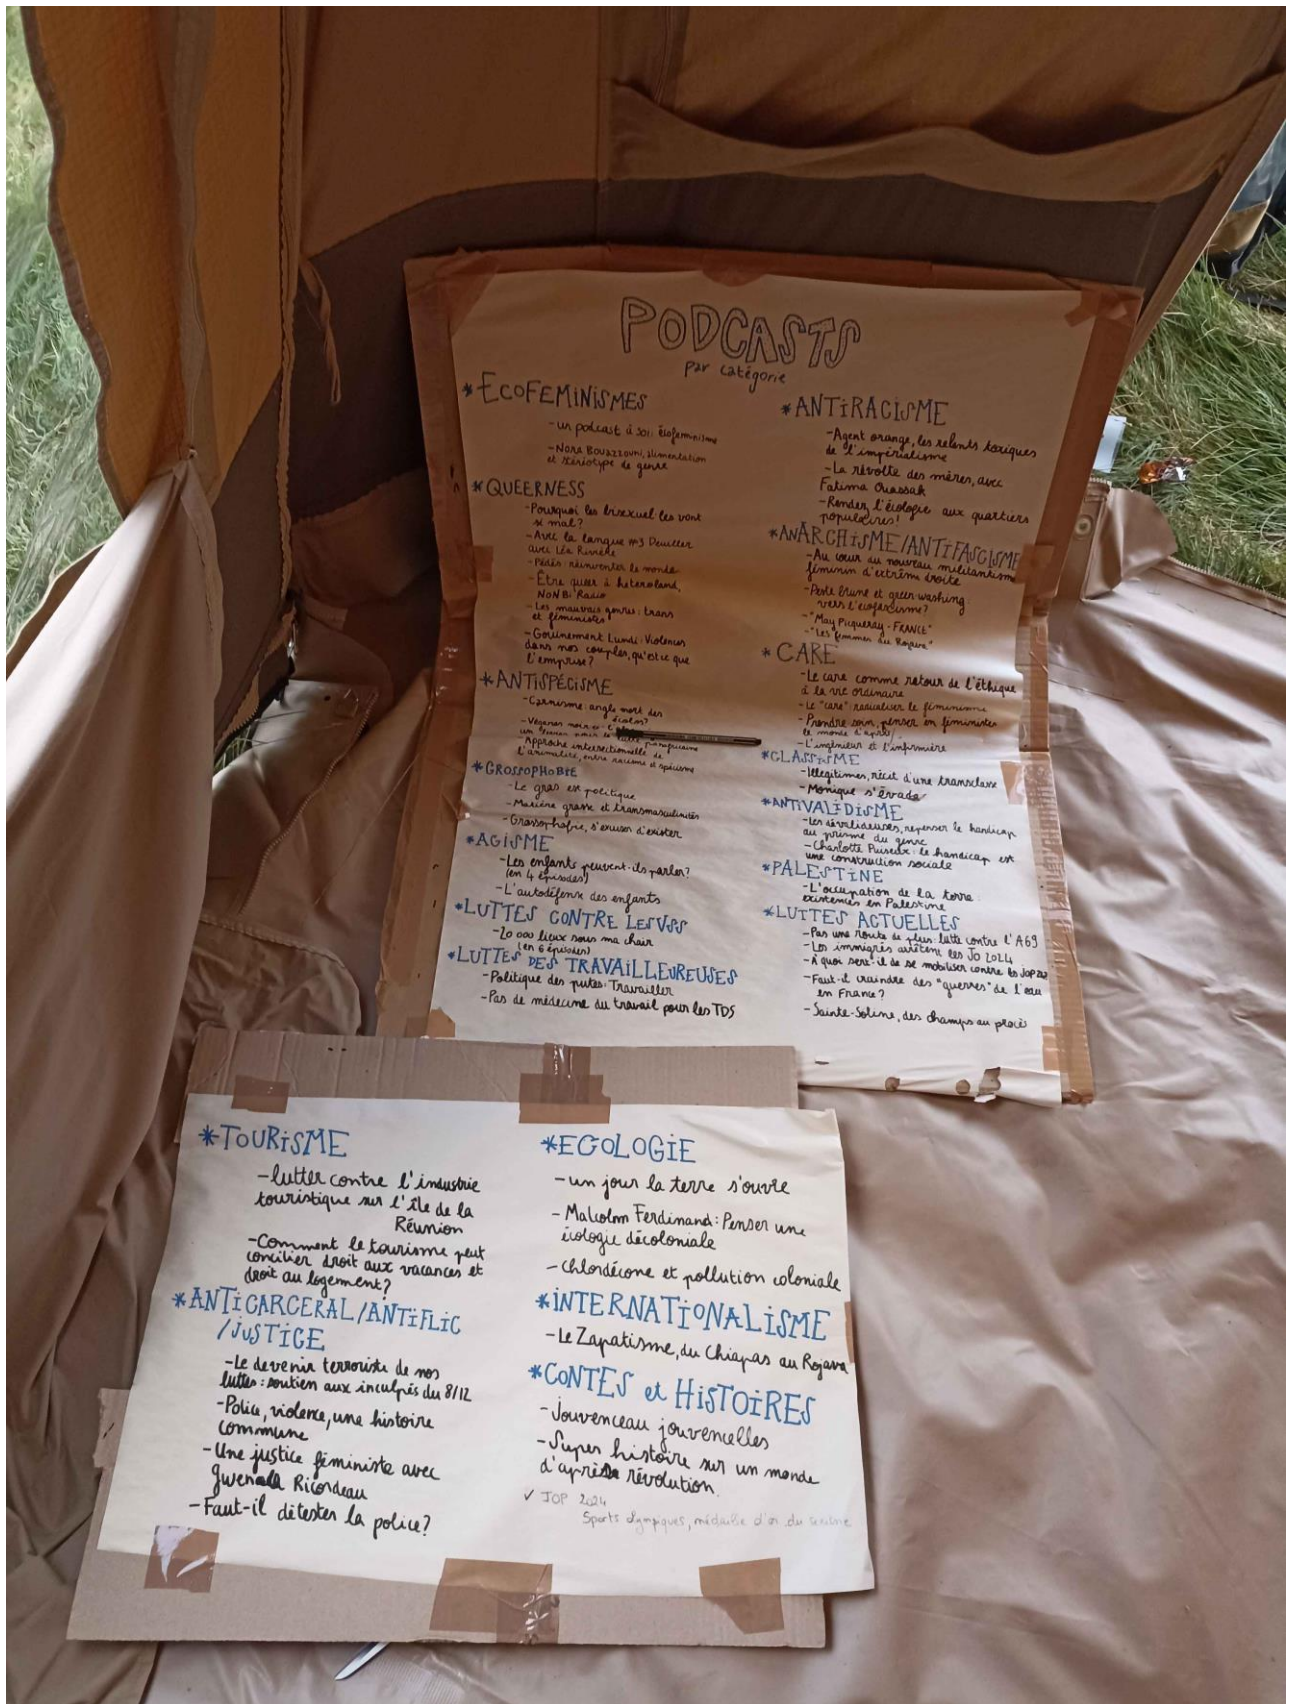 PODCASTS
par catégorie
*ECOFEMINISMES
- un podcast à soi: écofeminisme
- Nora Bouazzouni, alimentation
et stéréotype de genre
*QUEERNESS
- Pourquoi les bisexuel les vont
si mal?
- Avec la langue #3 Deuiller
avec Léa Rivière
- Pédés: réinventer le monde
- Être queer à heteroland,
NoN Bi Radio
- Les mauvais genres: trans
et féministes
- Gouinement Lundi: Violences
dans nos couples, qu'est ce que
l'emprise?
*ANTISPÉCISME
- Carnisme: angle mort des
écolos?
- Véganes noir.e.s:
un
- Approche intersectionnelle de
l'animalité, entre racisme et spécisme
*GROSSOPHOBIE
- Le gras est politique
- Mariène grosse et transmasculinités
- Grossophobie, s'excuser d'exister
*AGISME
- Les enfants peuvent-ils parler?
(en 4 épisodes)
- L'autodéfense des enfants
*LUTTES CONTRE LES VSS
- 20 000 lieux sous ma chair
(en 6 épisodes)
*LUTTES DES TRAVAILLEUREUSES
- Politique des putes: Travailler
- Pas de médecine du travail pour les TDS
*ANTIRACISME
- Agent orange, les relents toxiques
de l'impérialisme
- La révolte des mères, avec
Fatima Ouassak
- Rendez l'écologie aux quartiers
populaires!
*ANARCHISME/ANTIFASCISME
- Au cœur du nouveau militantisme
féminin d'extrême droite
- Peste brune et green washing:
vers l'écofascisme?
- "May Picqueray - FRANCE"
- "Les femmes du Rojava"
*CARE
- Le care comme retour de l'éthique
à la vie ordinaire
- Le "care" radicaliser le féminisme
- Prendre soin, penser en féministes
le monde d'après
- L'ingénieur et l'infirmière
*CLASSISME
- Illégitimes, récit d'une transclasse
- Monique s'évade
*ANTIVALIDISME
- Les dévalideuses, repenser le handicap
au prisme du genre
- Charlotte Puiseux: le handicap est
une construction sociale
*PALESTINE
- L'occupation de la terre.
existences en Palestine
*LUTTES ACTUELLES
- Pas une route de plus: lutte contre l'A69
- Les immigrés arrêtent les JO 2024
- À quoi sert-il de se mobiliser contre les JOP
- Faut-il craindre des "guerres" de l'eau
en France?
- Sainte-Soline, des champs au procès
*TOURISME
- lutter contre l'industrie
touristique sur l'île de la
Réunion
- Comment le tourisme peut
concilier droit aux vacances et
droit au logement?
*ANTICARCERAL/ANTIFLIC
/JUSTICE
- Le devenir terroriste de nos
luttes: soutien aux inculpés du 8/12
- Police, violence, une histoire
commune
- Une justice féministe avec
Gwenola Ricordeau
- Faut-il détester la police?
*ECOLOGIE
- un jour la terre s'ouvre
- Malcolm Ferdinand: Penser une
écologie décoloniale
- chlordécone et pollution coloniale
*INTERNATIONALISME
- Le Zapatisme, du Chiapas au Rojava
*CONTES et HISTOIRES
- Jouvenceau jouvencelles
- Super histoire sur un monde
d'après révolution.
✓ JOP 2024
Sports olympiques, médaille d'or du sexisme